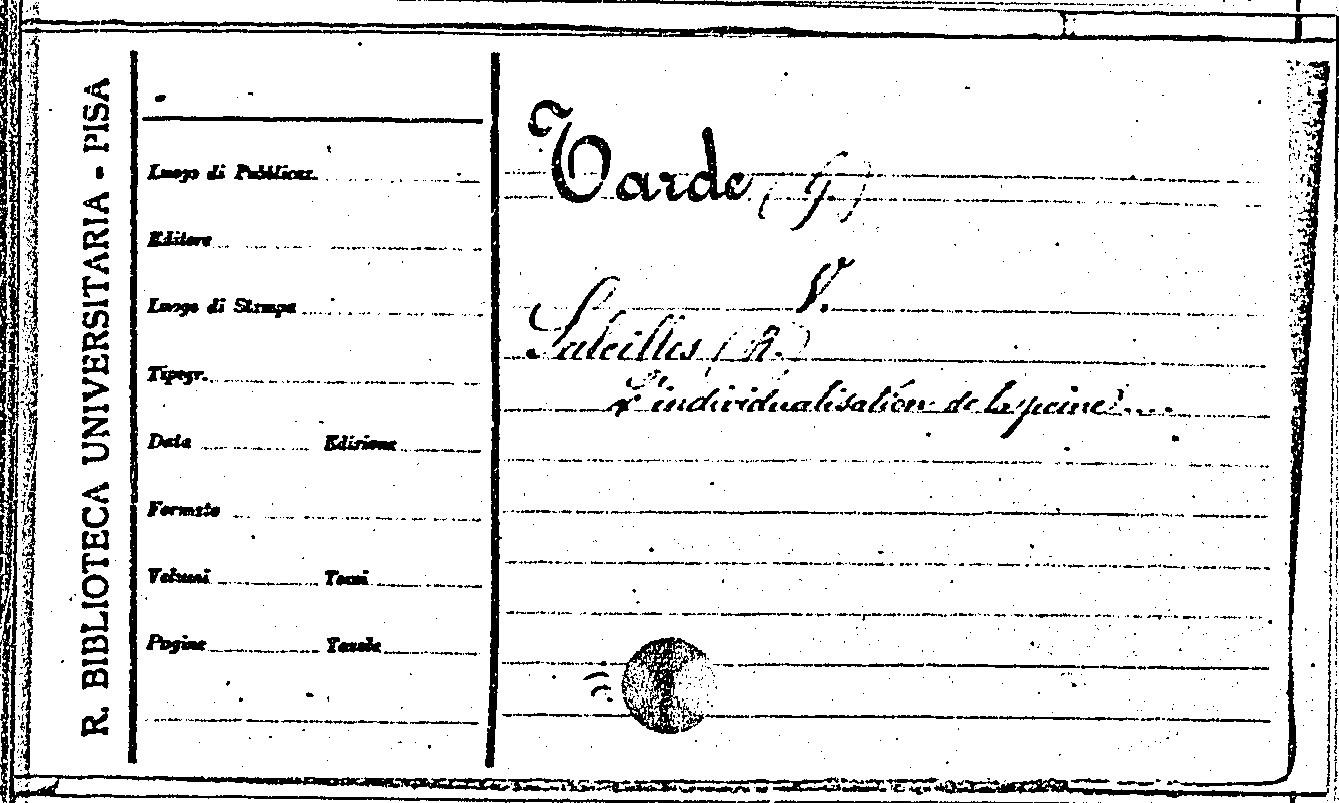 R. BIBLIOTECA UNIVERSITARIA - PISA
Luogo di Pubblicaz.
Editore
Luogo di Stampa
Tipogr.
Data Edizione
Formato
Volumi Tomi
Pagine Tavole
Tarde (G.)
V.
Saleilles (R.)
L'individualisation de la peine....